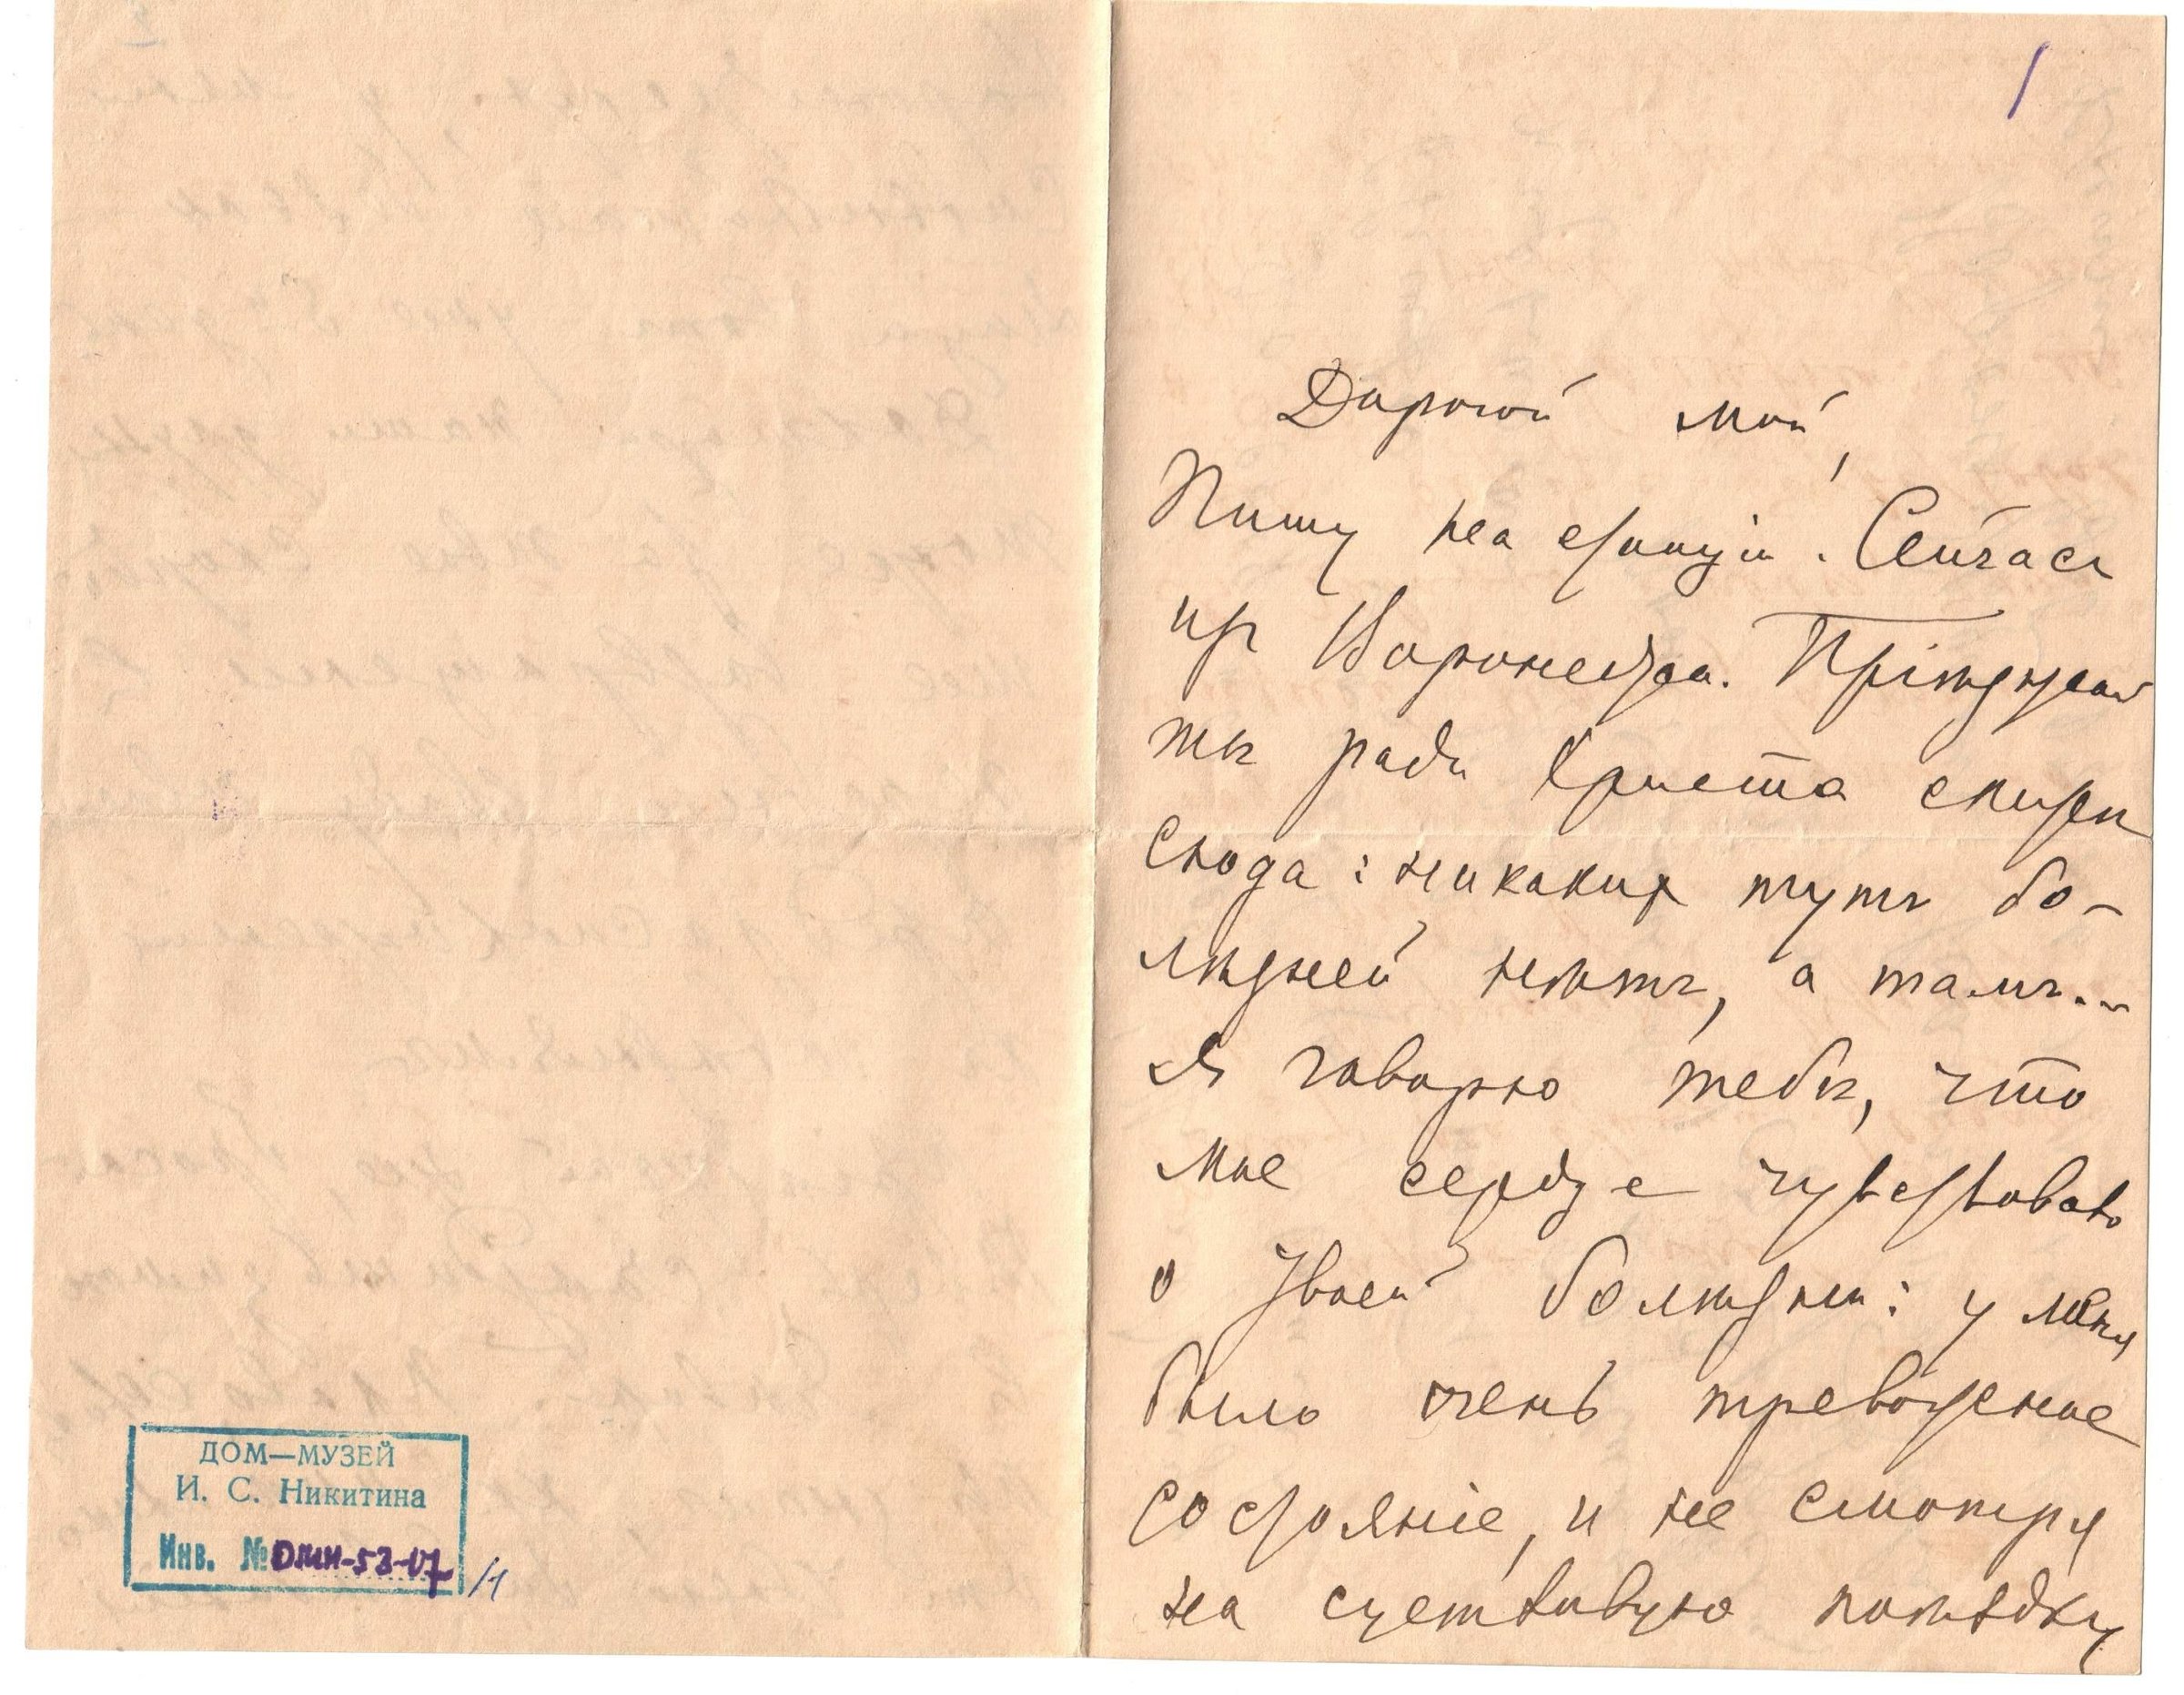 ДОМ—МУЗЕЙ
И. С. Никитина
Инв. №ДМН-53-07/1
1
Дорогой мой,
Пишу на станціи. Сейчасъ
изъ Воронежа. Пріѣзжай
ты ради Христа скорѣй
сюда: никакихъ тутъ бо-
лѣзней нѣтъ, а тамъ...
Я говорю тебѣ, что
мое сердце чувствовало
о твоей болѣзни: у меня
было очень тревожное
состояніе, и не смотря
на счастливую поѣздку